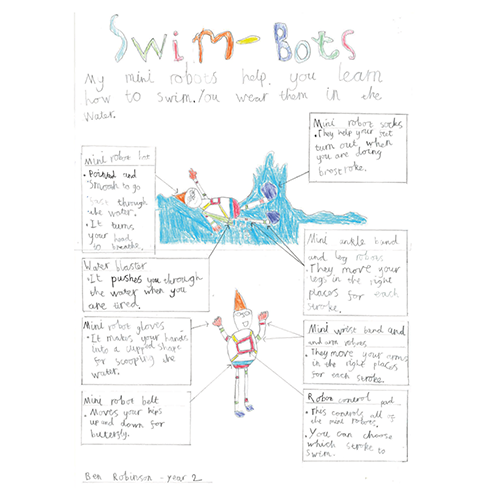 Swim-Bots
My mini robots help you learn
how to swim. You wear them in the
water.
Mini robor socks
• They help your feet
turn out when
you are doing
brestroke.
mini robor hat
• Pointed and
smooth to go
through
the water.
• It turns
your head
to breathe.
Mini ankle band
and leg robors
• They move your
legs in the right
places for each
stroke.
Water blaster
• It pushes you through
the water when you
are tired.
Mini robot gloves
• It makes your hands
into a cupped shape
for scooping the
water.
Mini wrise band and
and arm robors
• They move your arms
in the right places
for each stroke.
Mini robor belt
• Moves your hips
up and down for
butterfly.
Robor control pad
• This controls all of
the mini robors.
• You can choose
which stroke to
swim.
Ben Robinson - year 2